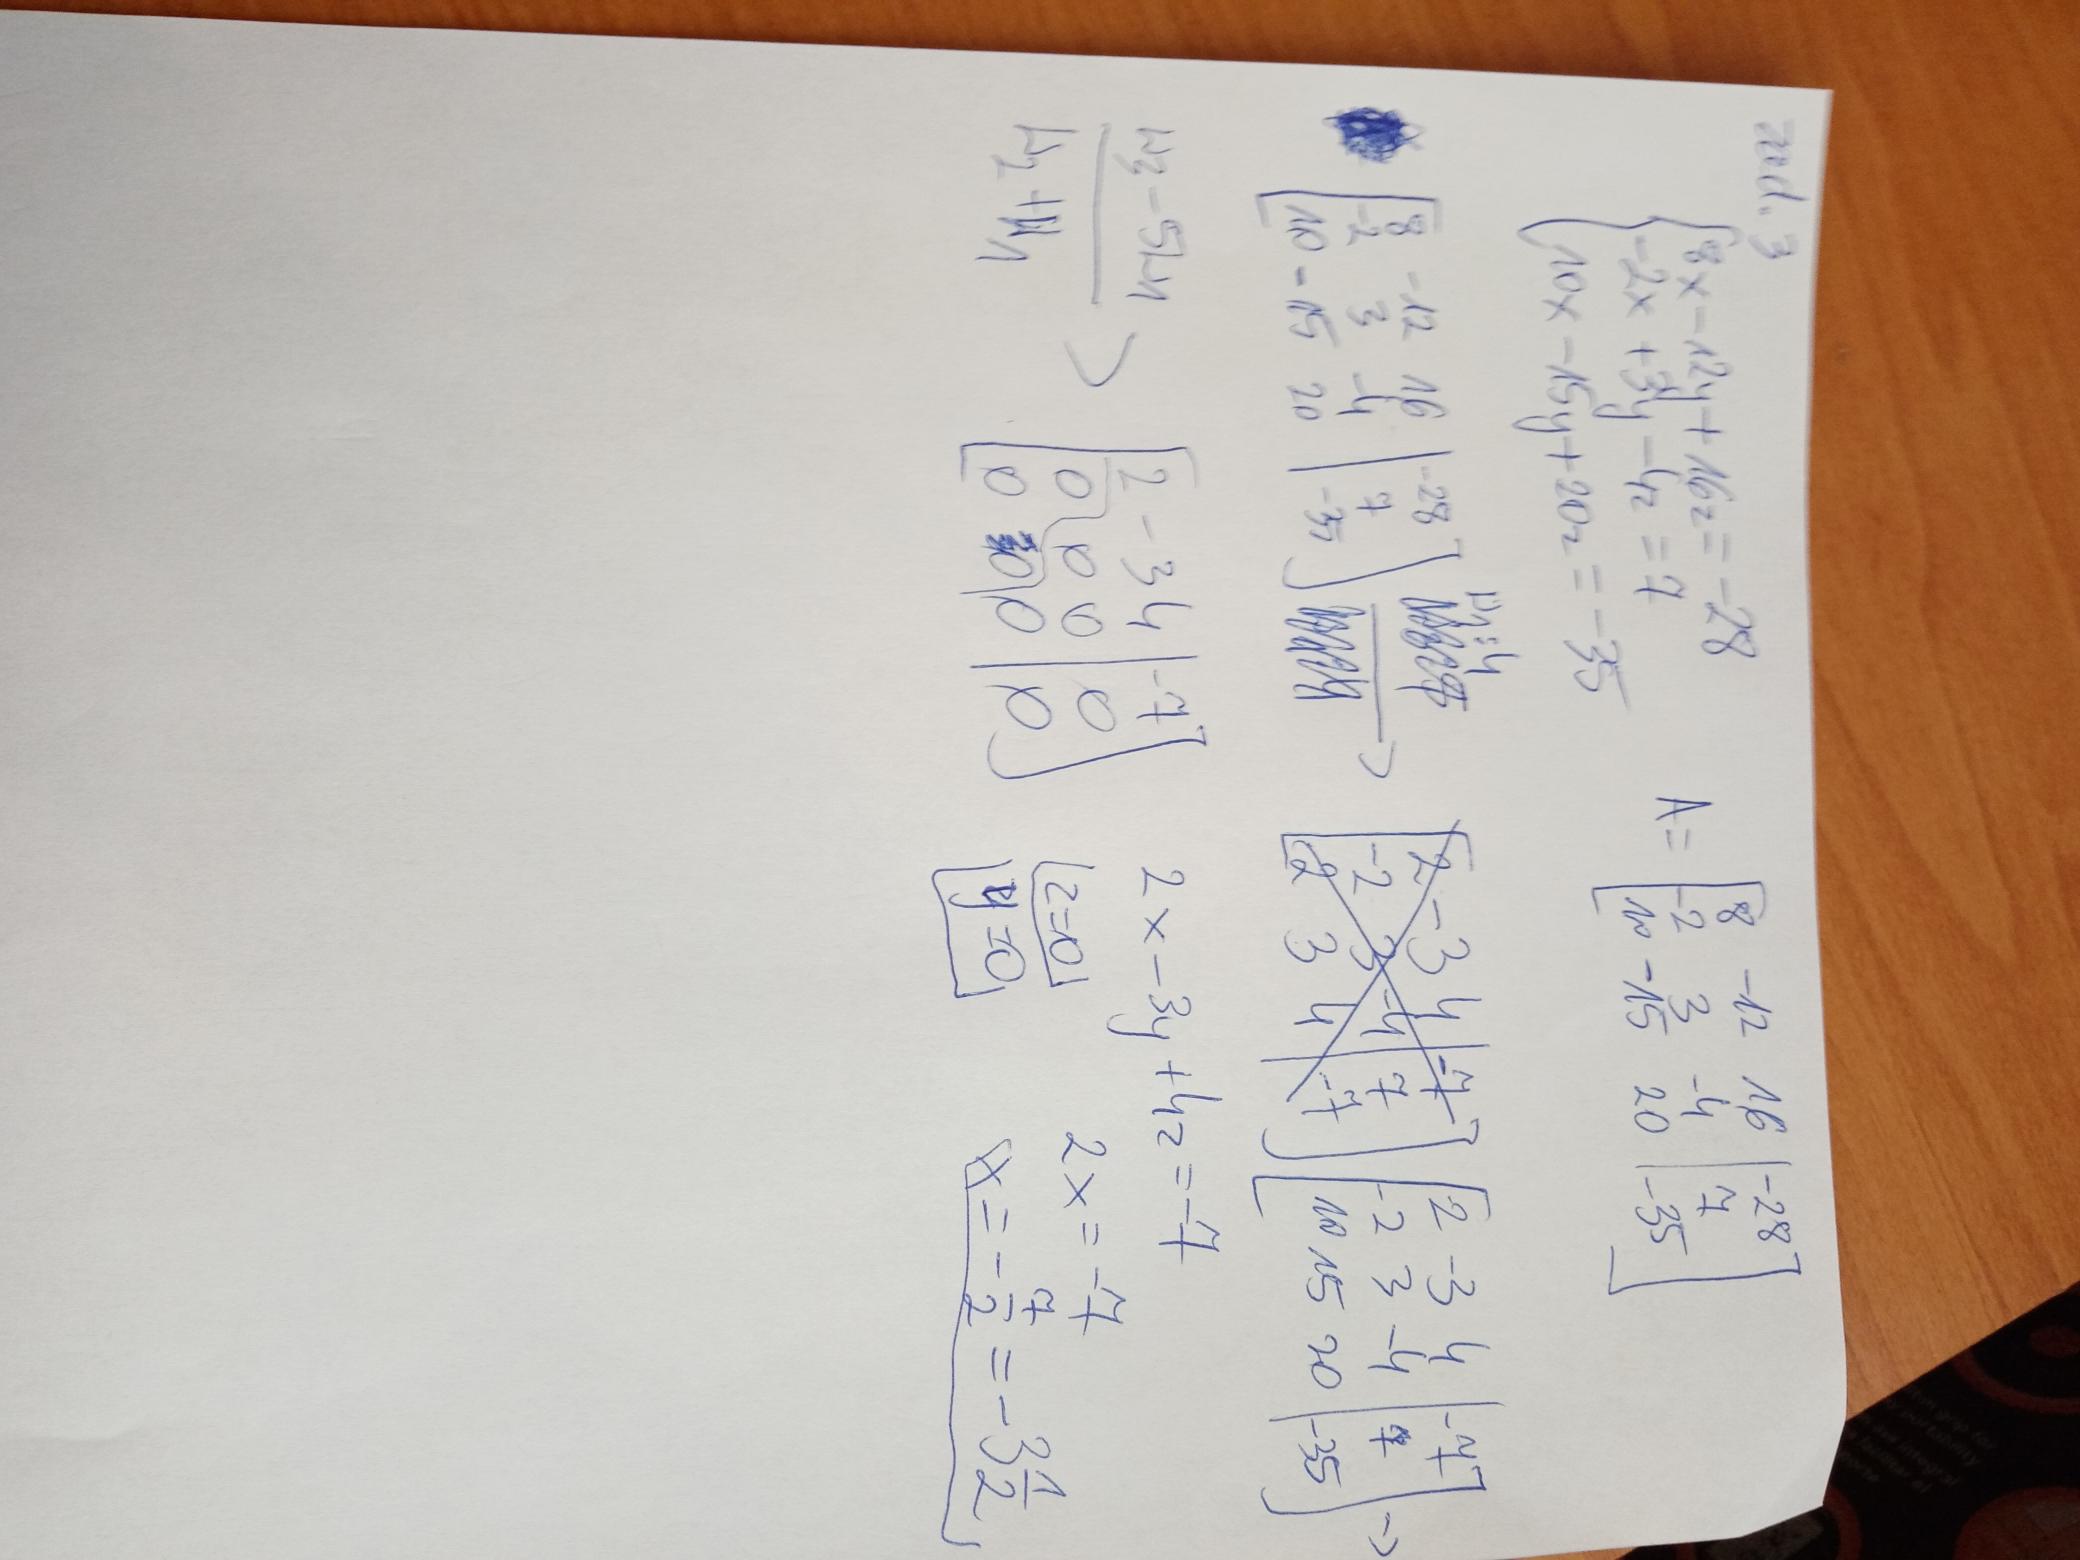 zad. 3
8x - 12y + 16z = -28
-2x + 3y - 4z = 7
10x - 15y + 20z = -35
A = [ 8 -12 16 | -28 ]
-2 3 -4 | 7
10 -15 20 | -35
[ 8 -12 16 | -28 ]
-2 3 -4 | 7
10 -15 20 | -35
w1:4
→
[ 2 -3 4 | -7 ]
-2 3 -4 | 7
2 3 4 | -7
[ 2 -3 4 | -7 ]
-2 3 -4 | 7
10 15 20 | -35
→
w3 - 5w1
w2 + w1
[ 2 -3 4 | -7 ]
0 0 0 | 0
0 0 0 | 0
2x - 3y + 4z = -7
z = 0
y = 0
2x = -7
x = -7/2 = -3 1/2